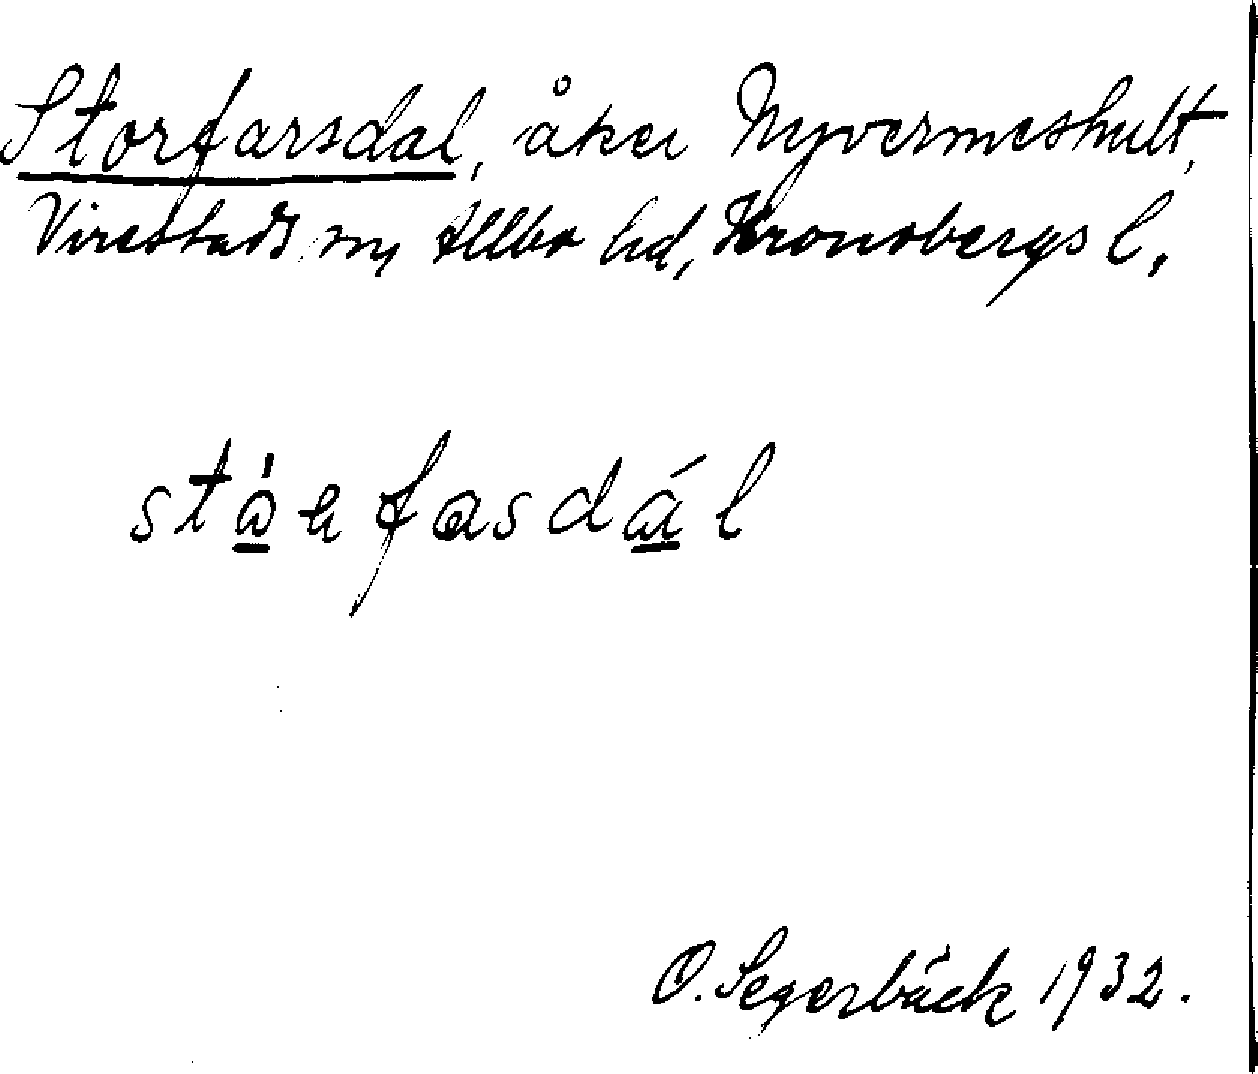 Storfarsdal, åker Nyvermeshult,
Virestads sn, Allbo hd, Kronobergs l.
O. Segerbäck 1932.